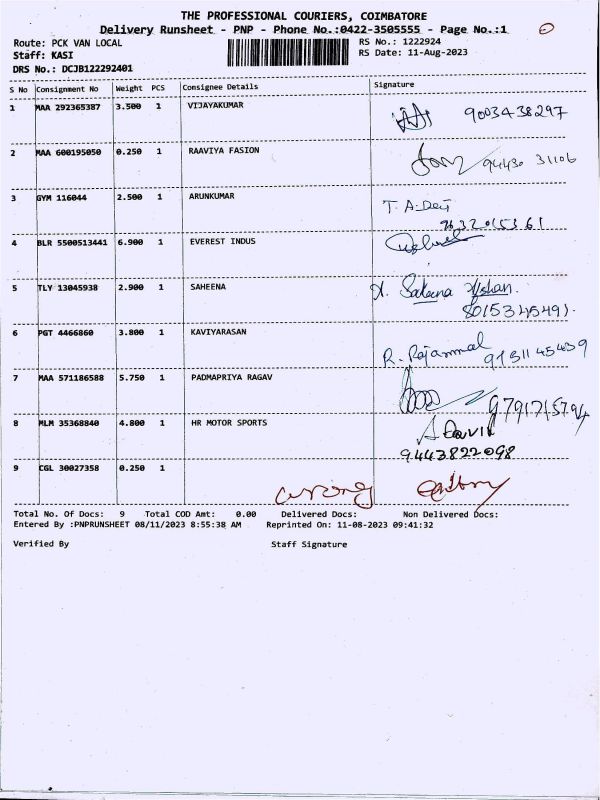 THE PROFESSIONAL COURIERS, COIMBATORE
Delivery Runsheet - PNP - Phone No.:0422-3505555 - Page No.:1
Route: PCK VAN LOCAL RS No.: 1222924
Staff: KASI RS Date: 11-Aug-2023
DRS No.: DCJB122292401
S No Consignment No Weight PCS Consignee Details Signature
1 MAA 292365387 3.500 1 VIJAYAKUMAR 9003438297
2 MAA 600195050 0.250 1 RAAVIYA FASION 94430 31106
3 GYM 116044 2.500 1 ARUNKUMAR T. A. Devi
9632015361
4 BLR 5500513441 6.900 1 EVEREST INDUS
5 TLY 13045938 2.900 1 SAHEENA Sakeena Afshan.
8015345491.
6 PGT 4466860 3.800 1 KAVIYARASAN R. Rajammal 9151145439
7 MAA 571186588 5.750 1 PADMAPRIYA RAGAV 9791715794
8 MLM 35368840 4.800 1 HR MOTOR SPORTS A David
9443822098
9 CGL 30027358 0.250 1
Total No. Of Docs: 9 Total COD Amt: 0.00 Delivered Docs: Non Delivered Docs:
Entered By :PNPRUNSHEET 08/11/2023 8:55:38 AM Reprinted On: 11-08-2023 09:41:32
Verified By Staff Signature